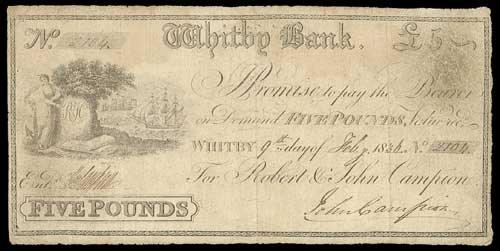 No. 2104. Whitby Bank. £5
Promise to pay the Bearer
on Demand FIVE POUNDS,
WHITBY 9th day of Feby 1836 No. 2104.
For Robert & John Campion
Entd
John Campion
FIVE POUNDS